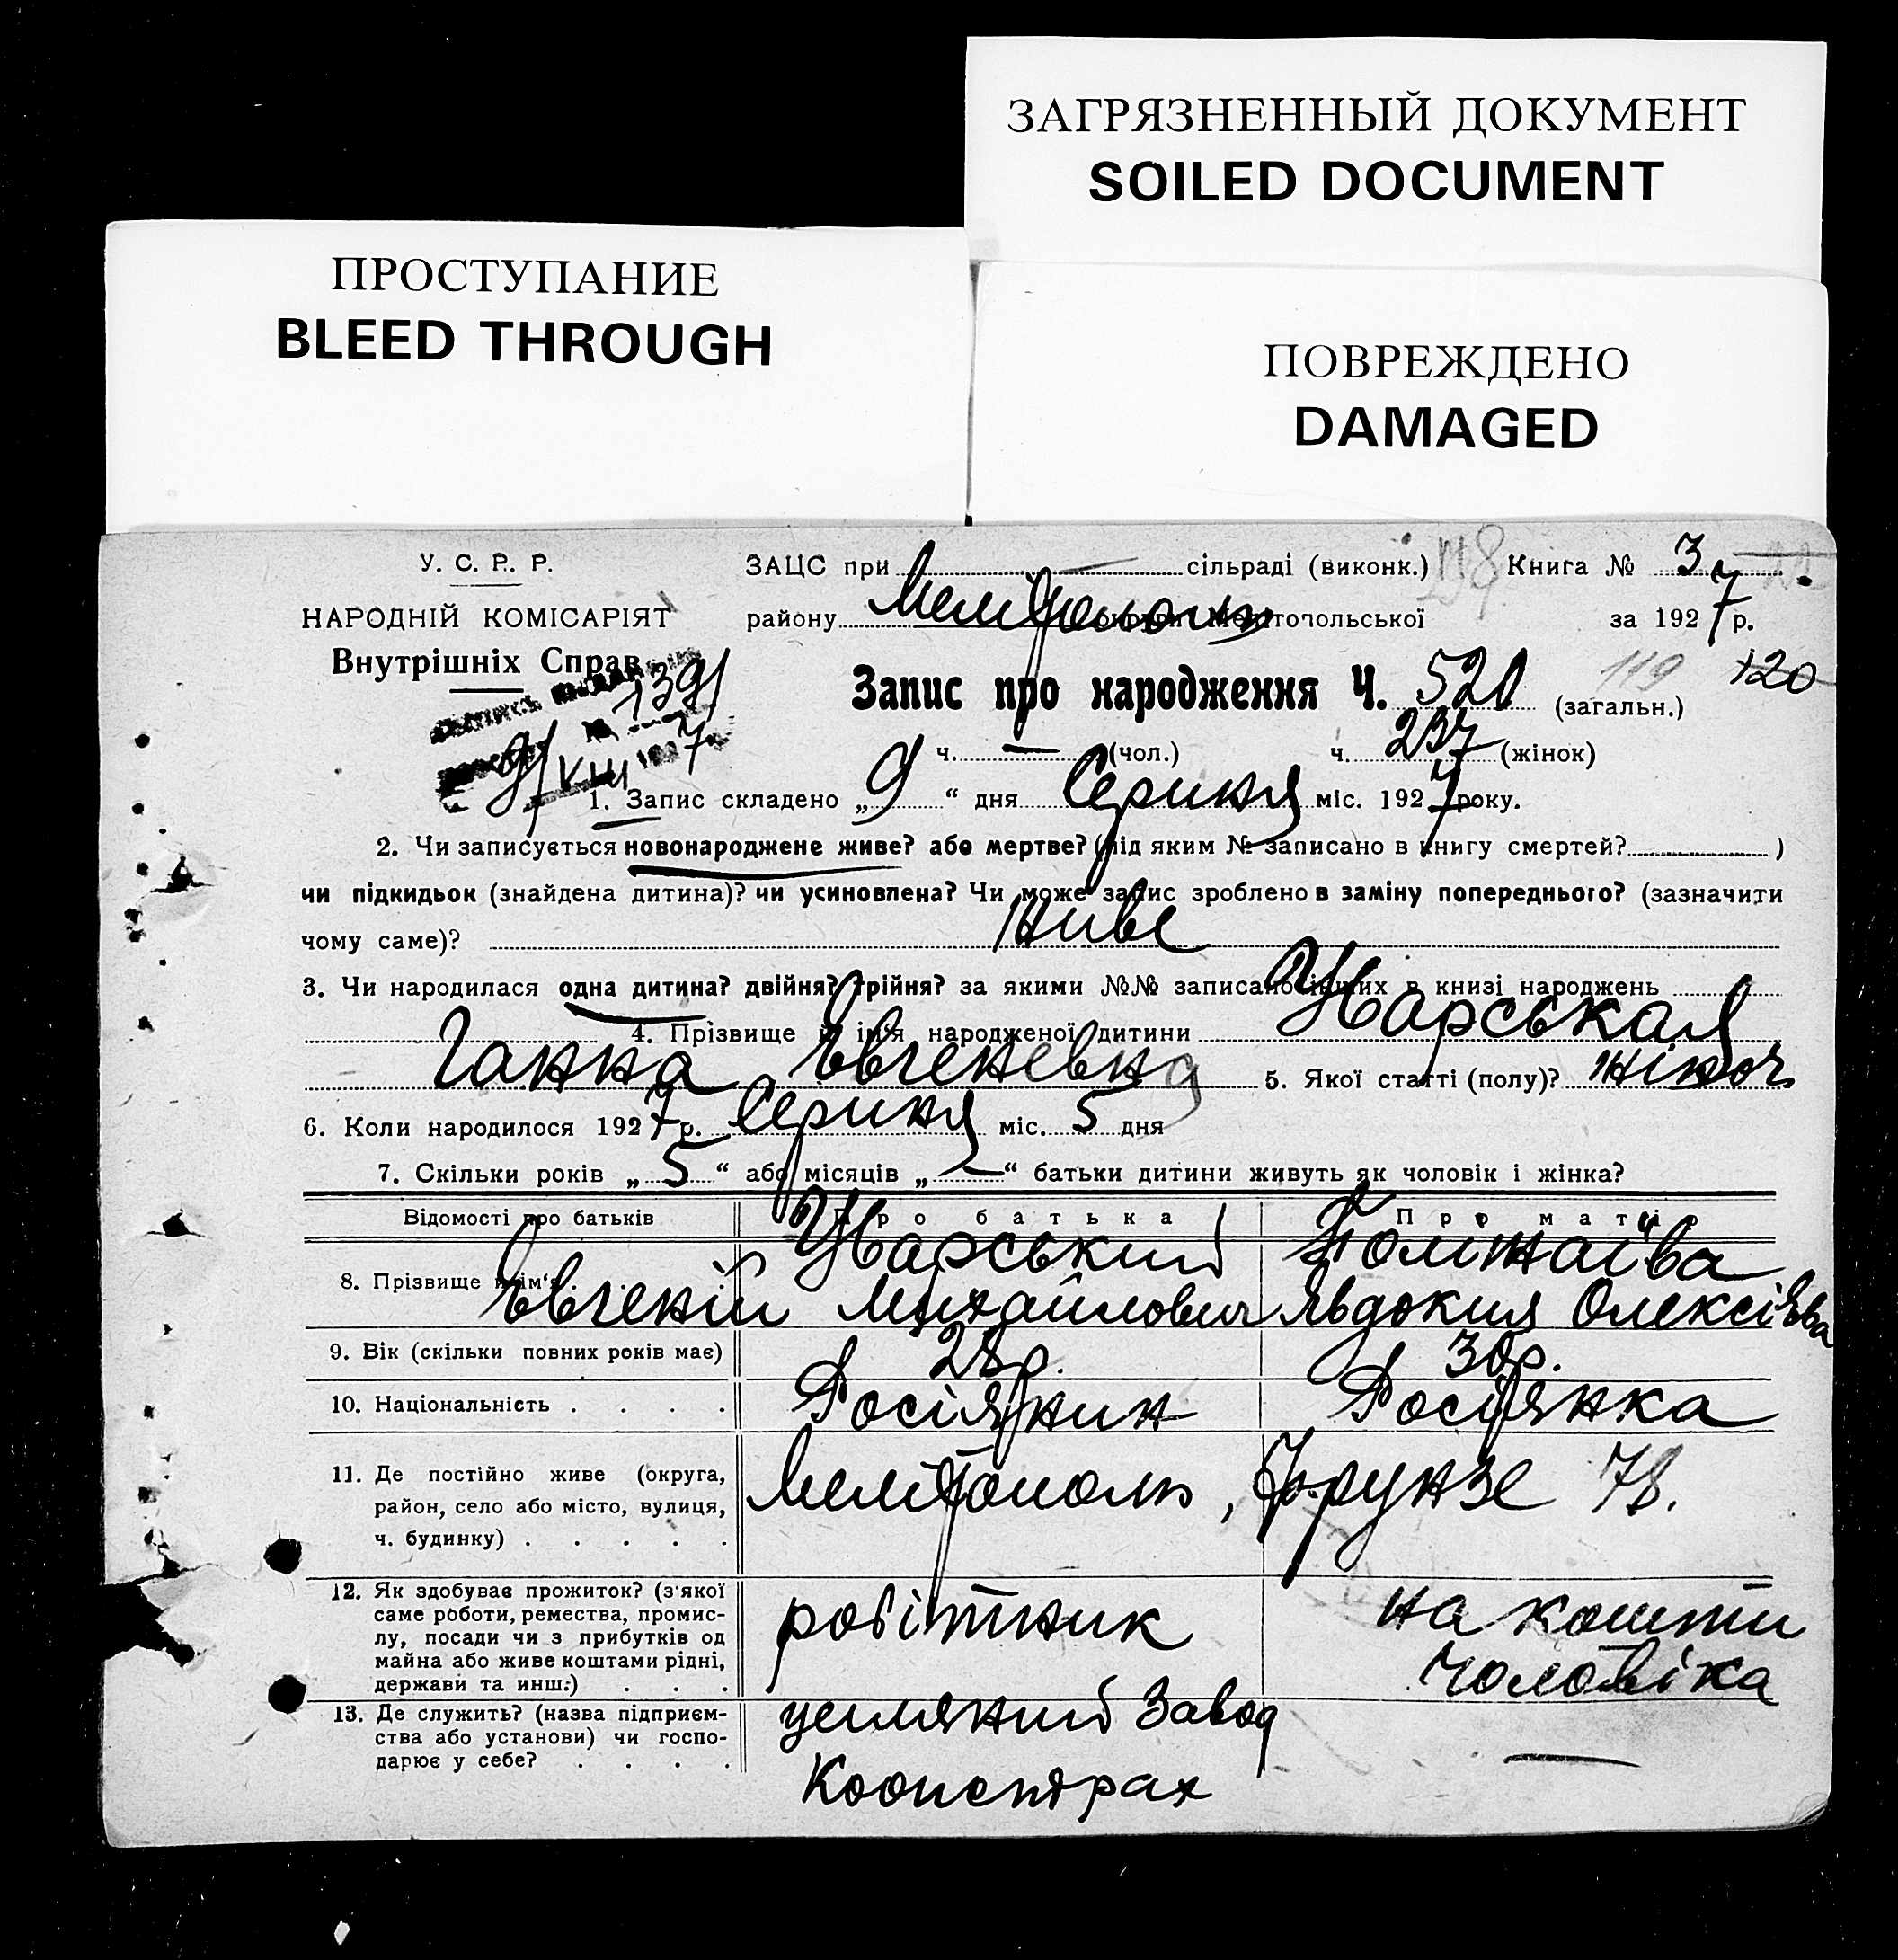 ЗАГРЯЗНЕННЫЙ ДОКУМЕНТ
SOILED DOCUMENT
ПРОСТУПАНИЕ
BLEED THROUGH
ПОВРЕЖДЕНО
DAMAGED
У. С. Р. Р.
ЗАЦС при — сільраді (виконк.) Книга № 3
НАРОДНІЙ КОМІСАРІЯТ
району Мелітополь округи Мелітопольської за 1927 р.
Внутрішніх Справ
1391
9/VIII 1927
Запис про народження Ч. 520 (загальн.) 119 120
ч. — (чол.) ч. 237 (жінок)
1. Запис складено „ 9 “ дня Серпня міс. 1927 року.
2. Чи записується новонароджене живе? або мертве? (під яким № записано в книгу смертей? )
чи підкидьок (знайдена дитина)? чи усиновлена? Чи може запис зроблено в заміну попереднього? (зазначити
чому саме)? живе
3. Чи народилася одна дитина? двійня? трійня? за якими №№ записано інших в книзі народжень
4. Прізвище й ім'я народженої дитини
Ганна Євгеневна 5. Якої статті (полу)? жіноч
6. Коли народилося 1927 р. Серпня міс. 5 дня
7. Скільки років „ 5 “ або місяців „ — “ батьки дитини живуть як чоловік і жінка?
Відомості про батьків Про батька Про матір
8. Прізвище й ім'я .
Євгеній Михайлович Явдокия Олексієва
9. Вік (скільки повних років має) 28 р. 30 р.
10. Національність . . . . Росіянин Росіянка
11. Де постійно живе (округа,
район, село або місто, вулиця,
ч. будинку) . . . . .
Мелітополь, Фрунзе 78.
12. Як здобуває прожиток? (з'якої
саме роботи, ремества, промис-
лу, посади чи з прибутків од
майна або живе коштами рідні,
держави та инш.) . . .
робітник
на кошти
чоловіка
13. Де служить? (назва підприєм-
ства або установи) чи госпо-
дарює у себе? . . . .
завод
Коопстрах
—